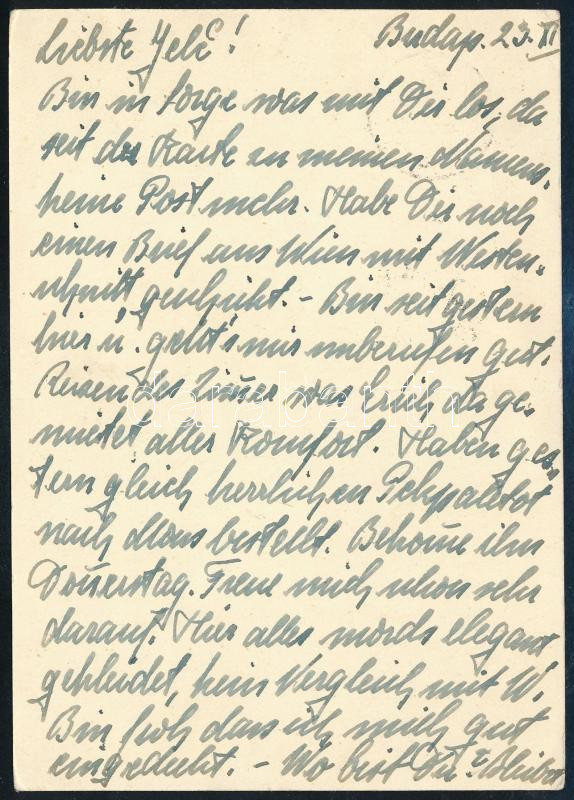 Liebste Jele! Budap. 23. XI
Bin in Sorge was mit Dir los, da
seit der Karte zu meinem Namens.
keine Post mehr. Habe Dir noch
einen Brief aus Wien mit Westen-
schnitt geschickt. - Bin seit gestern
hier u. geht's mir unberufen gut.
Reizendes Zimer was Erich da ge-
mietet aller Komfort. Haben ges-
tern gleich herrlichen Pelzpaletot
nach Mass bestellt. Bekome ihn
Donerstag. Freue mich schon sehr
darauf. Hier alles mords elegant
gekleidet, kein Vergleich mit W.
Bin froh dass ich mich gut
eingedeckt. - Wo bist Du?
darabanth